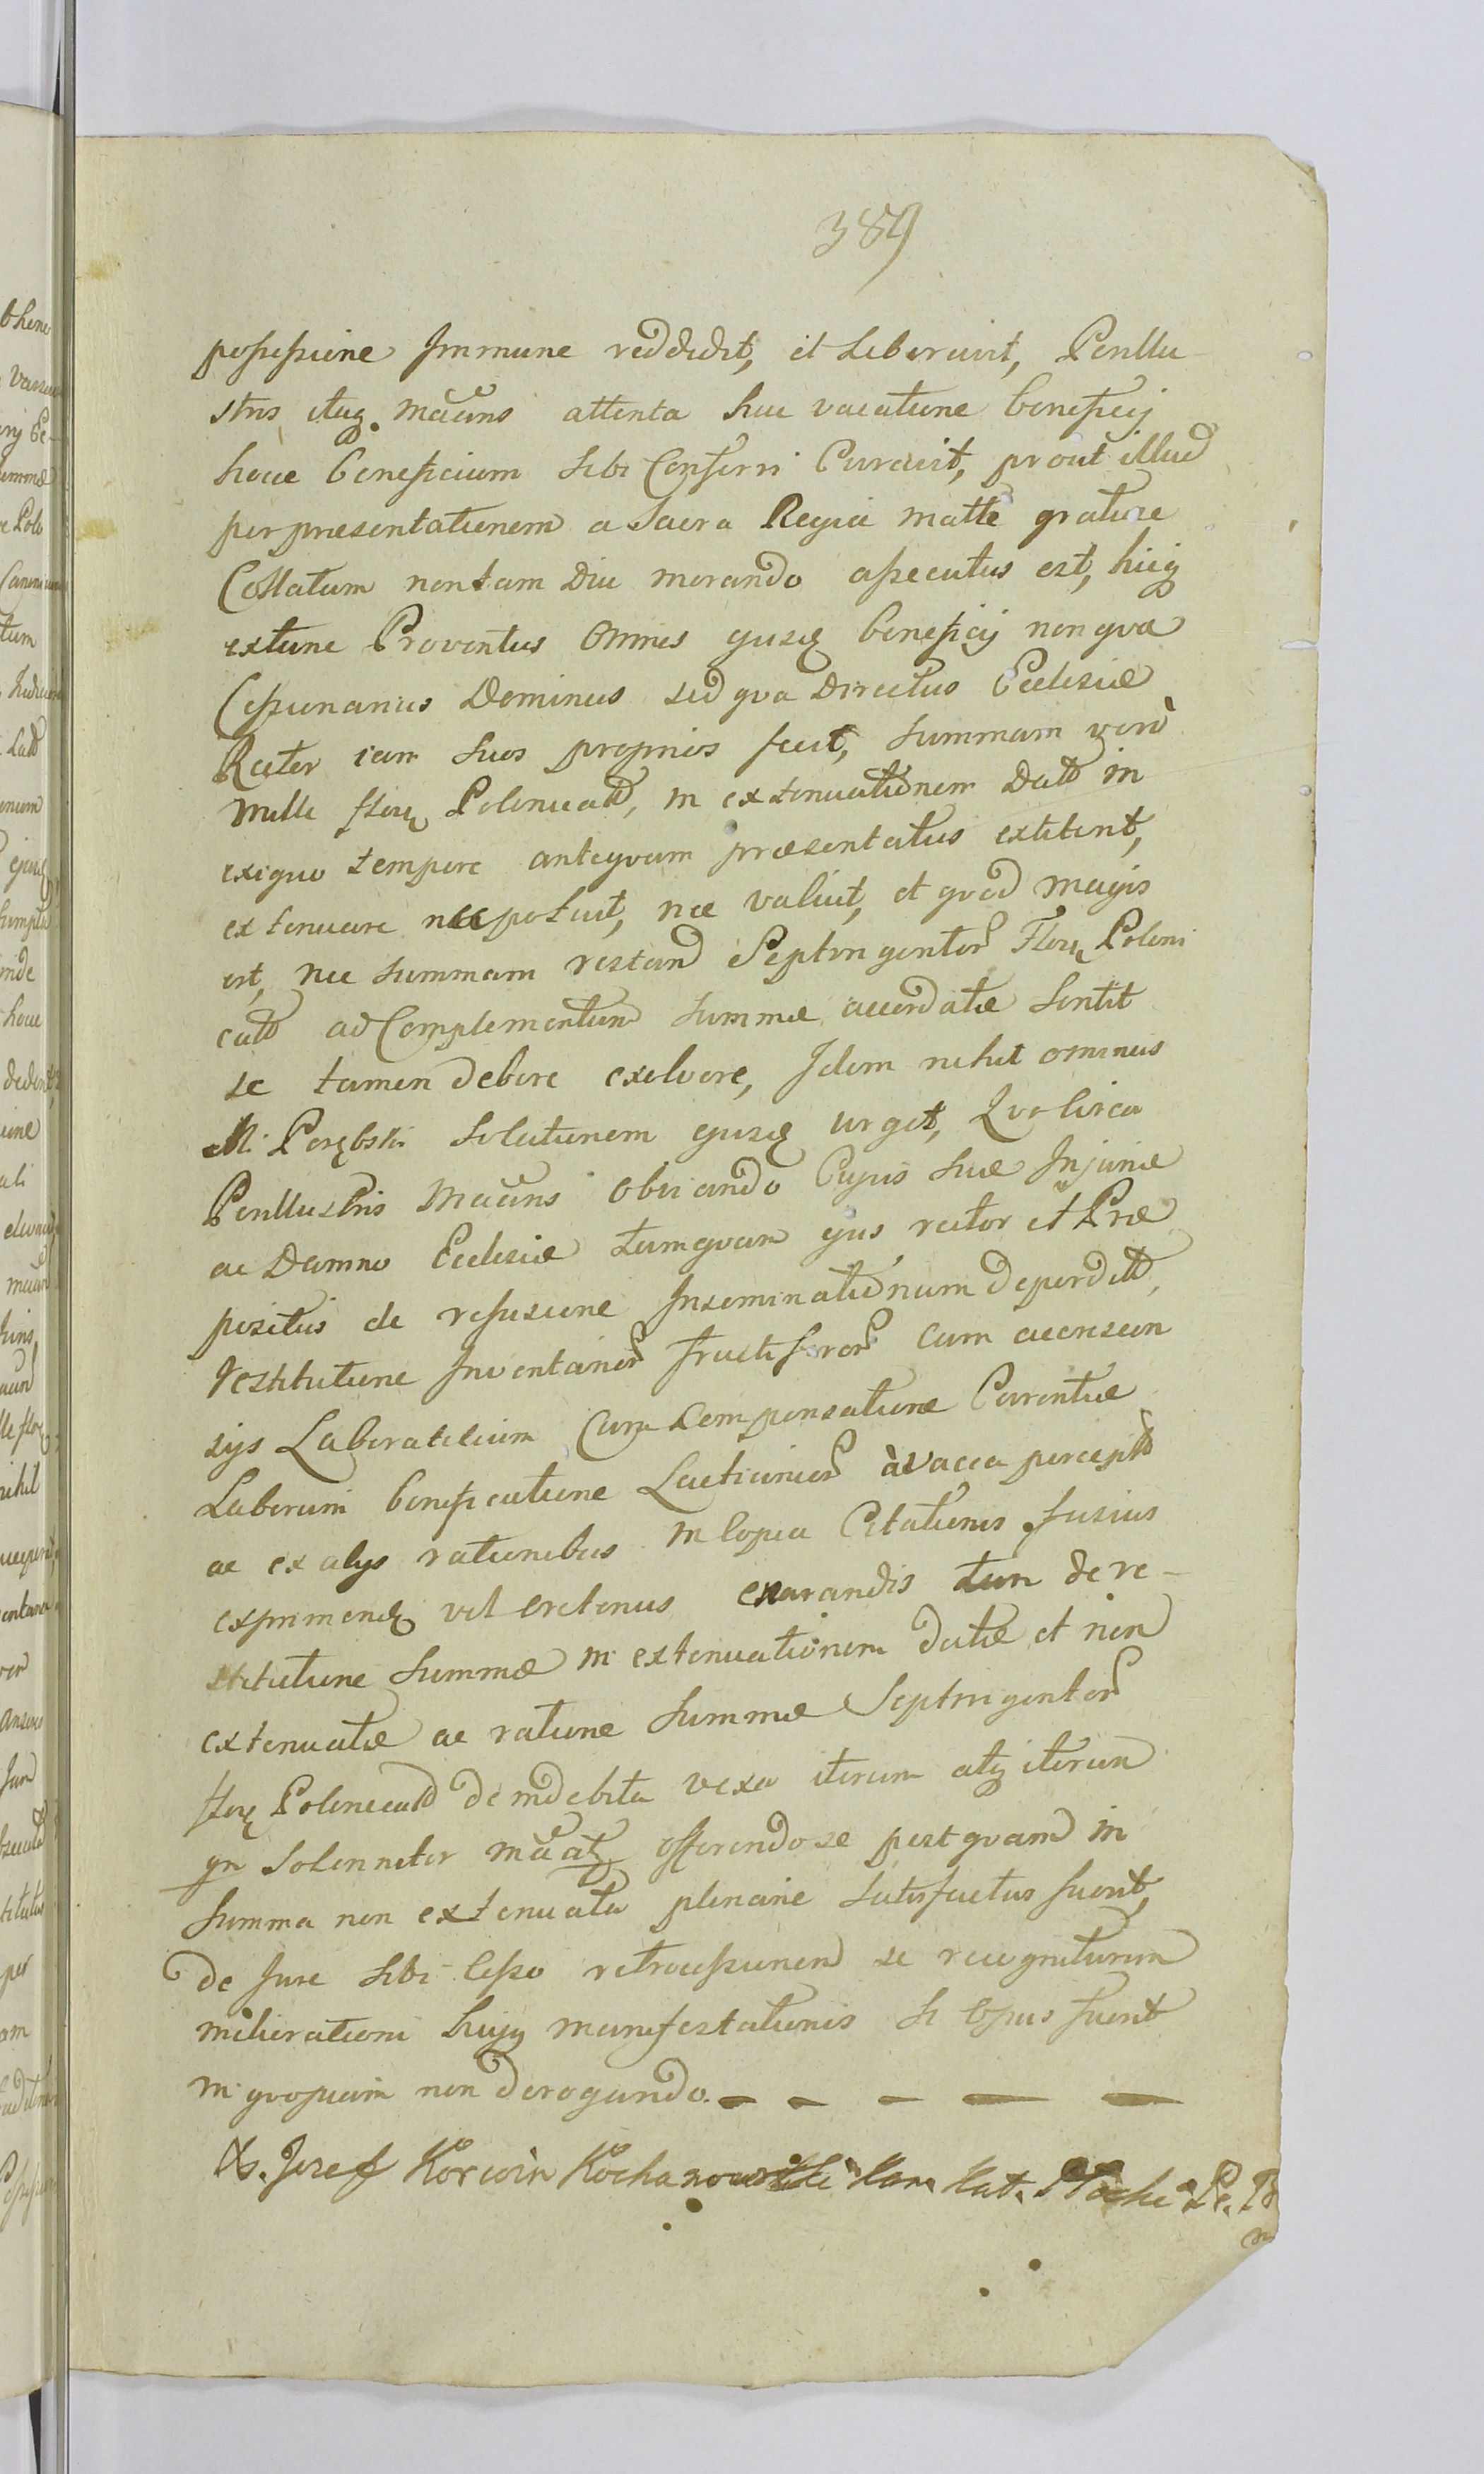 389
possessione Immune reddidit, et Liberavit, Perillu-
stris itaq. Mańns attenta hac vacatione beneficij
hocce beneficium sibi Conferri Curavit, prout illud
per praesentationem a Sacra Regia Matte gratiose
Collatum non tam Diu morando assecutus est, hicq
extunc Proventus Omnes ejusq beneficij non qua
Cessionarius Dominus sed qua Directus Ecclesiae
Rector iam suos proprios fecit, Summam verò
Mille flor Polonicalt, in extenuationem Dat in
exiguo tempore antequam praesentatus extiterit,
extenuare nec potuit, nec valuit, et quod magis
est, nec summam restan Septingentor Flor Poloni
calt ad Complementum Summae accordatae sentit
se tamen debere exolvere, Idem nihil ominus
M. Porębski Solutionem ejusq urget, Quo circa
Perillustris Mańns obviando Cujus suae Injuriae
ac Damno Ecclesiae tamquam ejus rector et Prae
positus de refusione Inseminationum deperdit,
restitutione Inventarior fructiferor cum accrescen
sys Laboratilium Cum Compensatione Carentiae
Laborum beneficatione Lacticinior à vacca percept
ac ex alys rationibus in Copia Citationis fusius
exprimend vel oretenus enarandis tum de re-
stitutione Summae in extenuationem datae et non
extenuatae ac ratione Summae Septingentor
flor Polonicalt de indebita vexa iterum atq iterum
Solenniter offerendo se postquam in
Summa non extenuata plenarie satisfactus fuerit,
de Jure sibi Cesso retrocessionem se recogniturum
meliorationi hujq manifestationis si Opus fuerit
in quopiam non derogando. - - - - -
Xs. Jozef Korwin Kochanowski Kan. Kat.